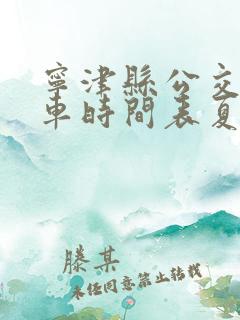 寧津縣公交
車時間表夏
滕某
未經同意禁止轉載